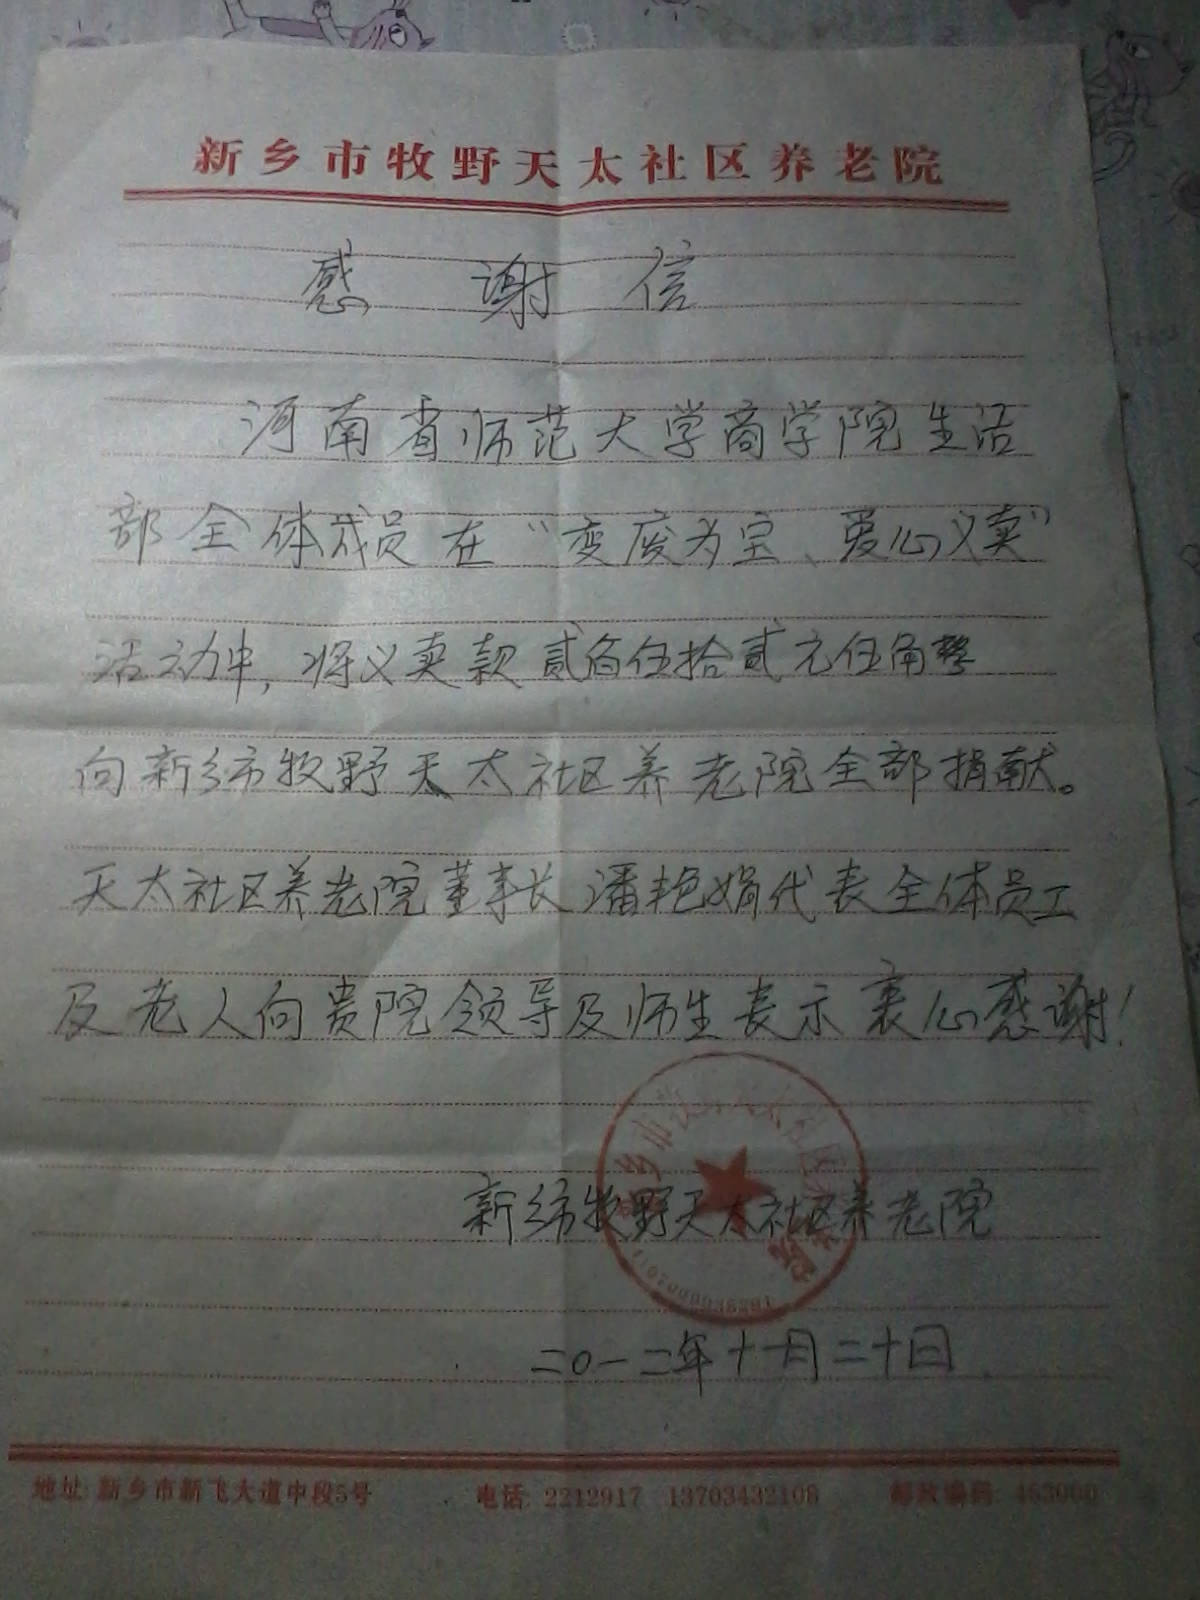 新乡市牧野天太社区养老院
感谢信
河南省师范大学商学院生活
部全体成员在“变废为宝、爱心义卖”
活动中，将义卖款贰佰伍拾贰元伍角整
向新乡市牧野天太社区养老院全部捐献。
天太社区养老院董事长潘艳娟代表全体员工
及老人向贵院领导及师生表示衷心感谢！
新乡市牧野天太社区养老院
二〇一二年十一月二十日
地址:新乡市新飞大道中段5号 电话: 2212917 13703432108 邮政编码: 453000